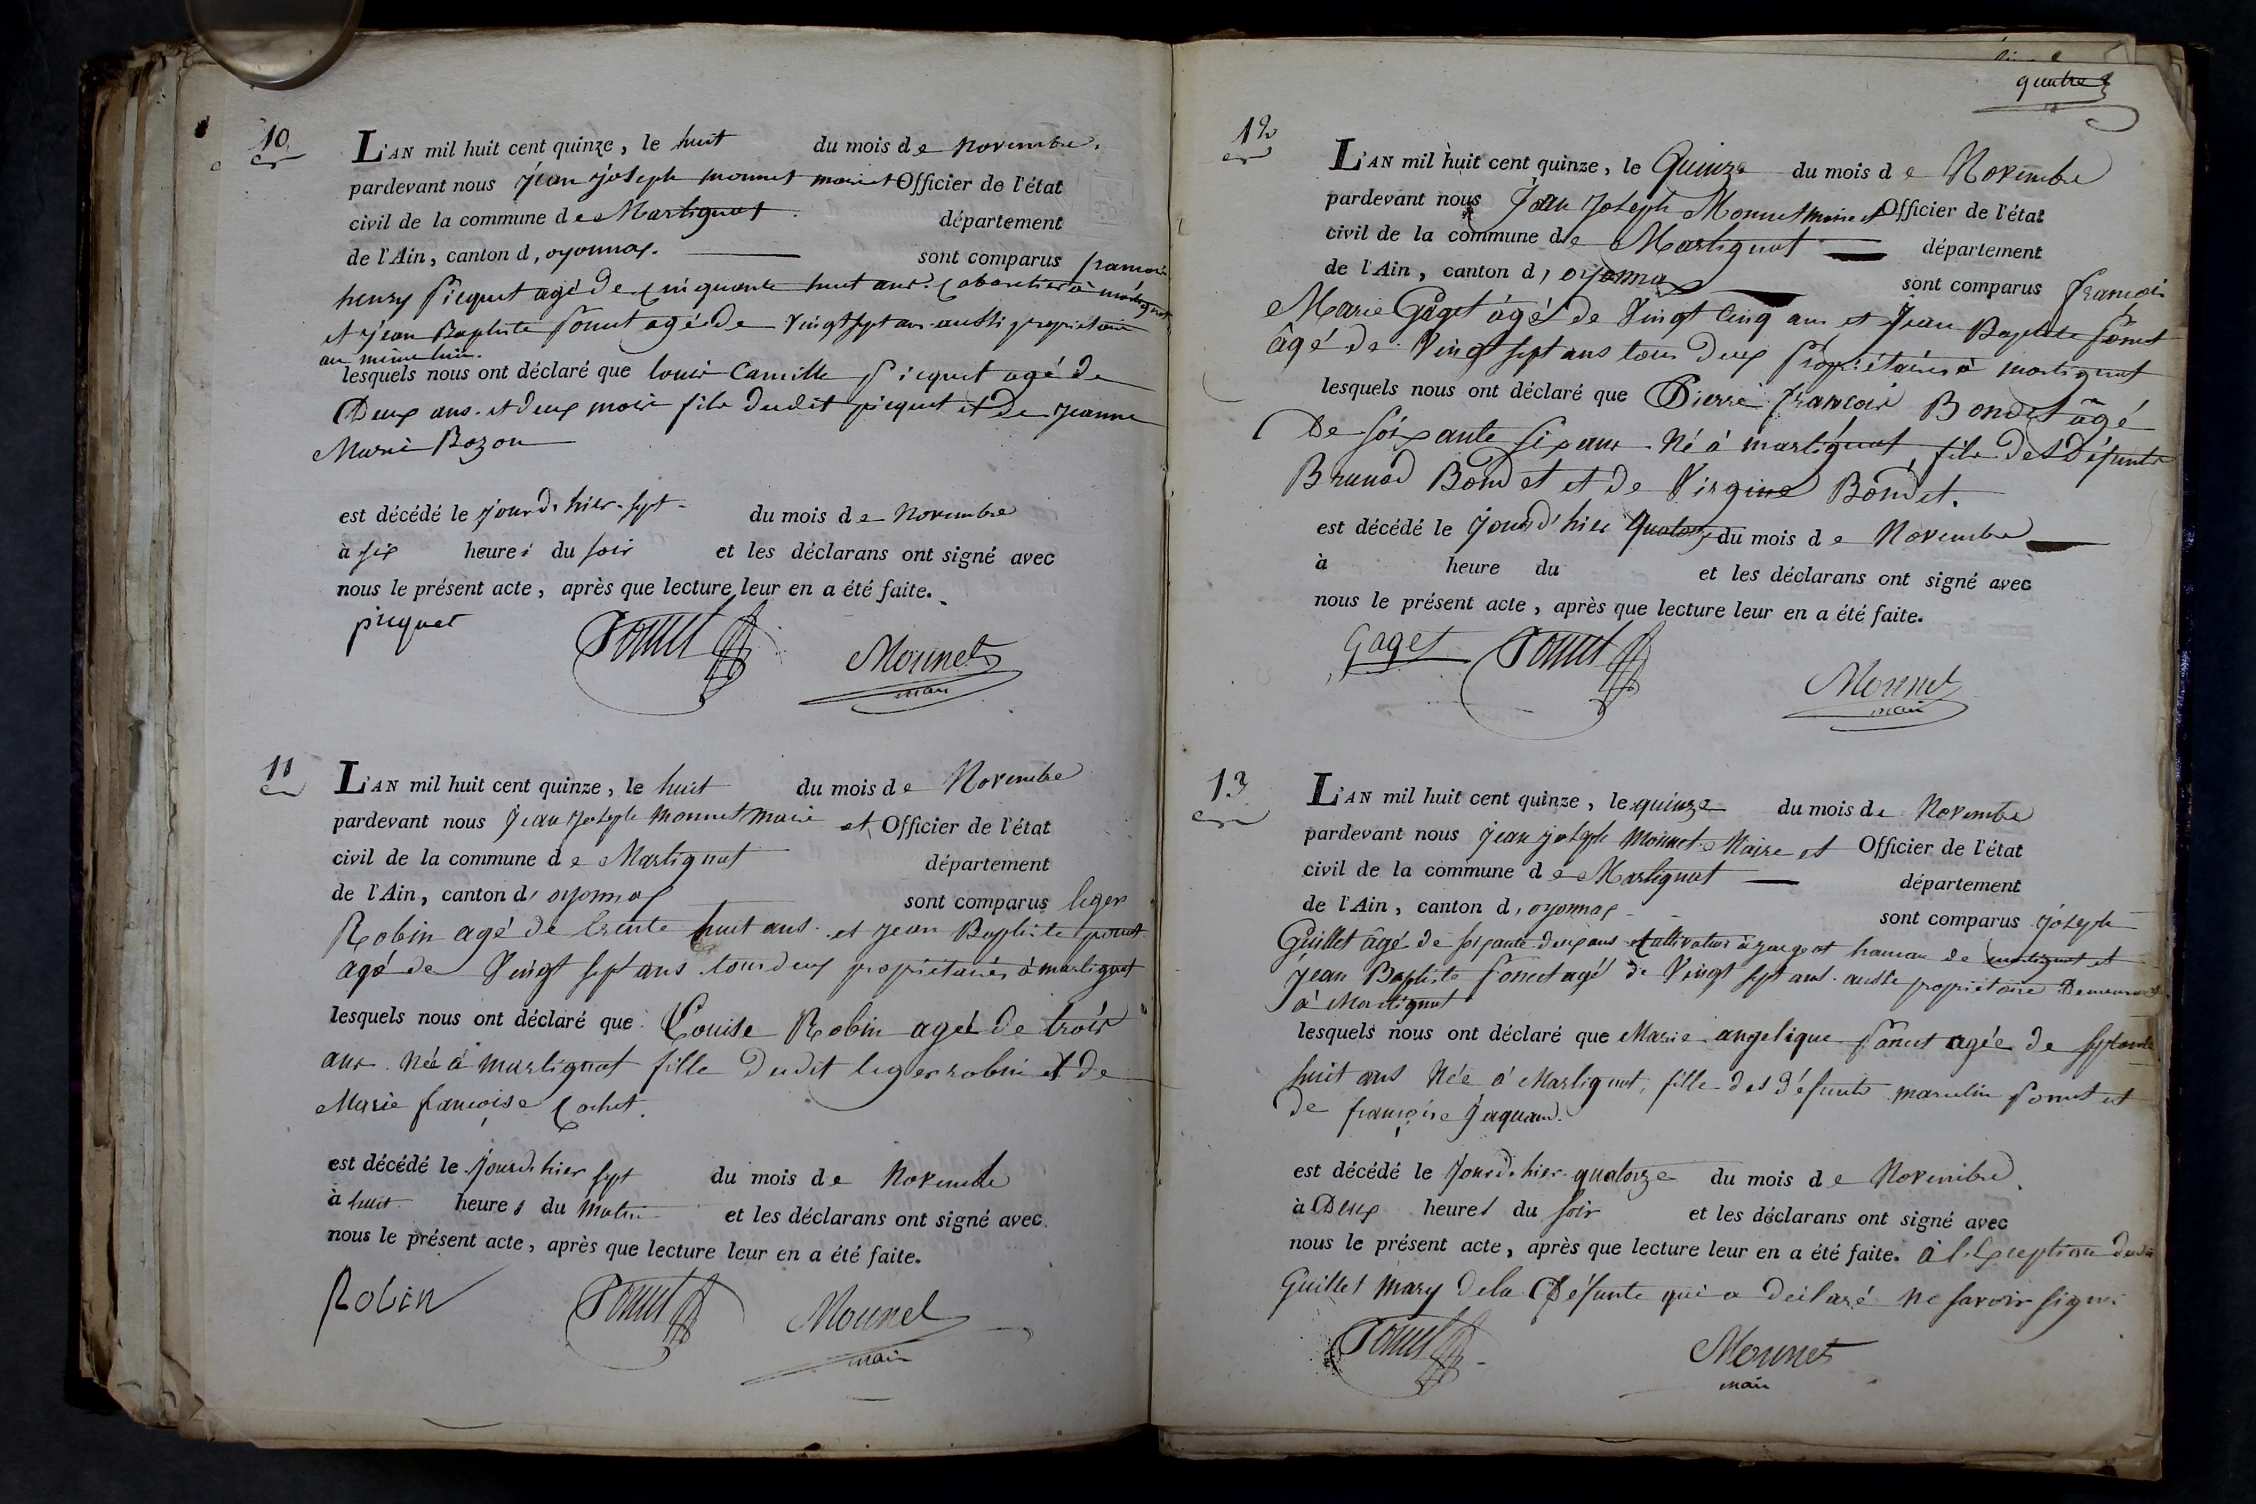 10
L'AN mil huit cent quinze, le huit du mois de Novembre
pardevant nous jean joseph monnet maire et Officier de l'état
civil de la commune de Martignat département
de l'Ain, canton d'oyonnax. sont comparus francois
henry picquet agé de cinquante huit ans. Cabaretier à martignat
et jean Baptiste Sonnet agé de vingt sept ans aussi proprietaire
au même lieu.
lesquels nous ont déclaré que louis Camille picquet agé de
Deux ans et deux mois fils dudit picquet et de jeanne
Marie Bozon
est décédé le jour d'hier sept du mois de Novembre
à six heures du soir et les déclarans ont signé avec
nous le présent acte, après que lecture leur en a été faite.
picquet Monnet
maire
11
L'AN mil huit cent quinze, le huit du mois de Novembre
pardevant nous jean joseph monnet maire et Officier de l'état
civil de la commune de Martignat département
de l'Ain, canton d'oyonnax sont comparus leger
Robin agé de trente huit ans et jean Baptiste
agé de vingt sept ans tous deux proprietaires à martignat
lesquels nous ont déclaré que Louise Robin agée de trois
ans née à martignat fille dudit leger robin et de
Marie françoise Cochet.
est décédé le jour d'hier sept du mois de Novembre
à huit heures du matin et les déclarans ont signé avec
nous le présent acte, après que lecture leur en a été faite.
Robin Monnet
maire
quatre
12
L'AN mil huit cent quinze, le Quinze du mois de Novembre
pardevant nous Jean Joseph Monnet maire et Officier de l'état
civil de la commune de Martignat département
de l'Ain, canton d'oyonnax sont comparus françois
Marie Gaget âgé de Vingt Cinq ans et Jean Baptiste
âgé de Vingt sept ans tous deux Propriétaires à martignat
lesquels nous ont déclaré que Pierre françois Bondet âgé
De soixante six ans Né à martignat, fils des défunts
Bondet et de Virginie Bondet.
est décédé le jour d'hier Quatorze du mois de Novembre
à heure du et les déclarans ont signé avec
nous le présent acte, après que lecture leur en a été faite.
Gaget Monnet
maire
13
L'AN mil huit cent quinze, le quinze du mois de Novembre
pardevant nous jean joseph Monnet Maire et Officier de l'état
civil de la commune de Martignat département
de l'Ain, canton d'oyonnax sont comparus joseph
Guillet âgé de soixante deux ans Cultivateur à hameau de martignat et
jean Baptiste agé de Vingt sept ans aussi proprietaire Demeurant
à Martignat
lesquels nous ont déclaré que Marie angelique agée de septante
huit ans Née à Martignat, fille des défunts marcelin et
de françoise Jaquand.
est décédé le jour d'hier quatorze du mois de Novembre
à Deux heures du soir et les déclarans ont signé avec
nous le présent acte, après que lecture leur en a été faite. à l'exception dudit
Guillet mary dela Défunte qui a déclaré ne savoir signer
Monnet
maire